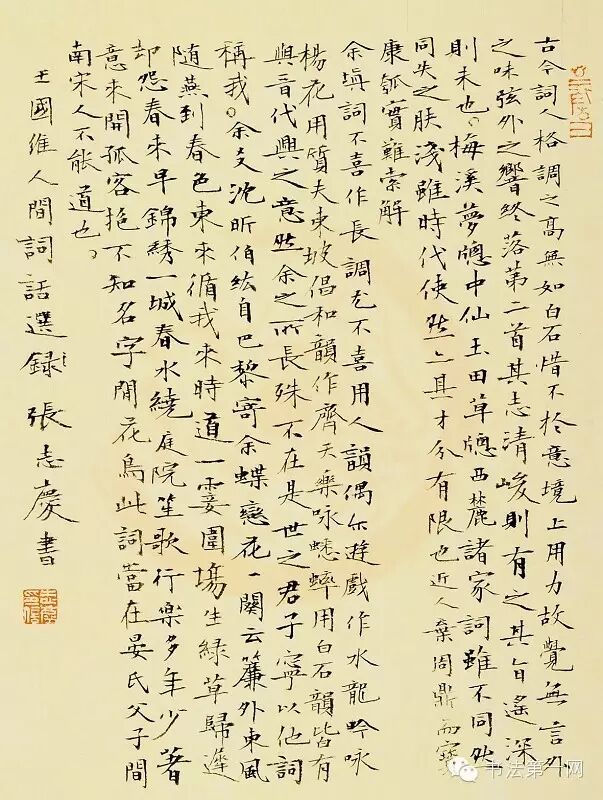 古今詞人格調之高無如白石惜不於意境上用力故覺無言外
之味弦外之響終落第二首其志清峻則有之其旨遙深
則未也。梅溪夢牕中仙玉田草牕西麓諸家詞雖不同然
同失之肤淺雖時代使然亦其才分有限也近人棄周鼎而寶
康瓠實難索解
余填詞不喜作長調尤不喜用人韻偶尔遊戲作水龍吟咏
楊花用質夫東坡倡和韻作齊天樂咏蟋蟀用白石韻皆有
與晉代興之意然余之所長殊不在是世之君子寧以他詞
稱我。余友沈昕伯紘自巴黎寄余蝶戀花一闋云簾外東風
随燕到春色東來循我來時道一霎圍場生綠草歸遲
却怨春來早錦綉一城春水繞庭院笙歌行樂多年少著
意來開孤客抱不知名字閒花鳥此詞當在晏氏父子間
南宋人不能道也。
王國維人間詞話選録 張志慶書
书法第一网